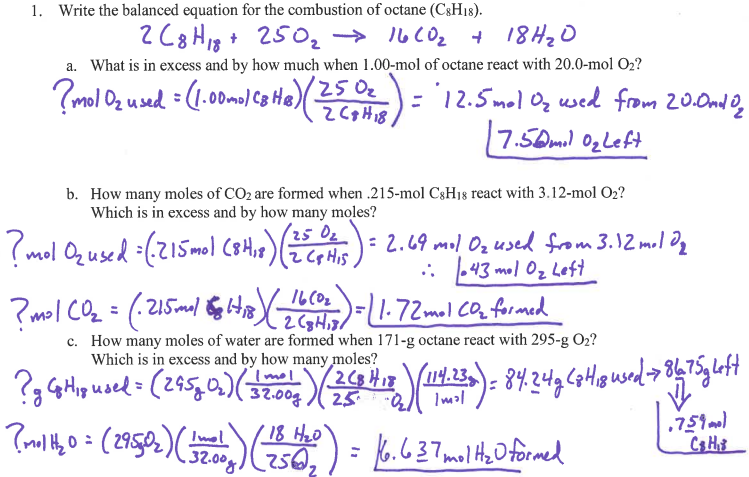 1. Write the balanced equation for the combustion of octane (C₈H₁₈).
2 C₈H₁₈ + 25O₂ → 16 CO₂ + 18 H₂O
a. What is in excess and by how much when 1.00-mol of octane react with 20.0-mol O₂?
? mol O₂ used = (1.00mol C₈H₁₈)(25 O₂ / 2 C₈H₁₈) = 12.5 mol O₂ used from 20.0mol O₂
7.50mol O₂ Left
b. How many moles of CO₂ are formed when .215-mol C₈H₁₈ react with 3.12-mol O₂?
Which is in excess and by how many moles?
? mol O₂ used = (.215mol C₈H₁₈)(25 O₂ / 2 C₈H₁₈) = 2.69 mol O₂ used from 3.12 mol O₂
∴ .43 mol O₂ Left
? mol CO₂ = (.215mol C₈H₁₈)(16 CO₂ / 2 C₈H₁₈) = 1.72mol CO₂ formed
c. How many moles of water are formed when 171-g octane react with 295-g O₂?
Which is in excess and by how many moles?
? g C₈H₁₈ used = (295g O₂)(1 mol / 32.00g)(2 C₈H₁₈ / 25 O₂)(114.23g / 1 mol) = 84.24g C₈H₁₈ used → 86.75g Left
⇓
.759 mol
C₈H₁₈
? mol H₂O = (295g O₂)(1 mol / 32.00g)(18 H₂O / 25 O₂) = 6.637 mol H₂O formed